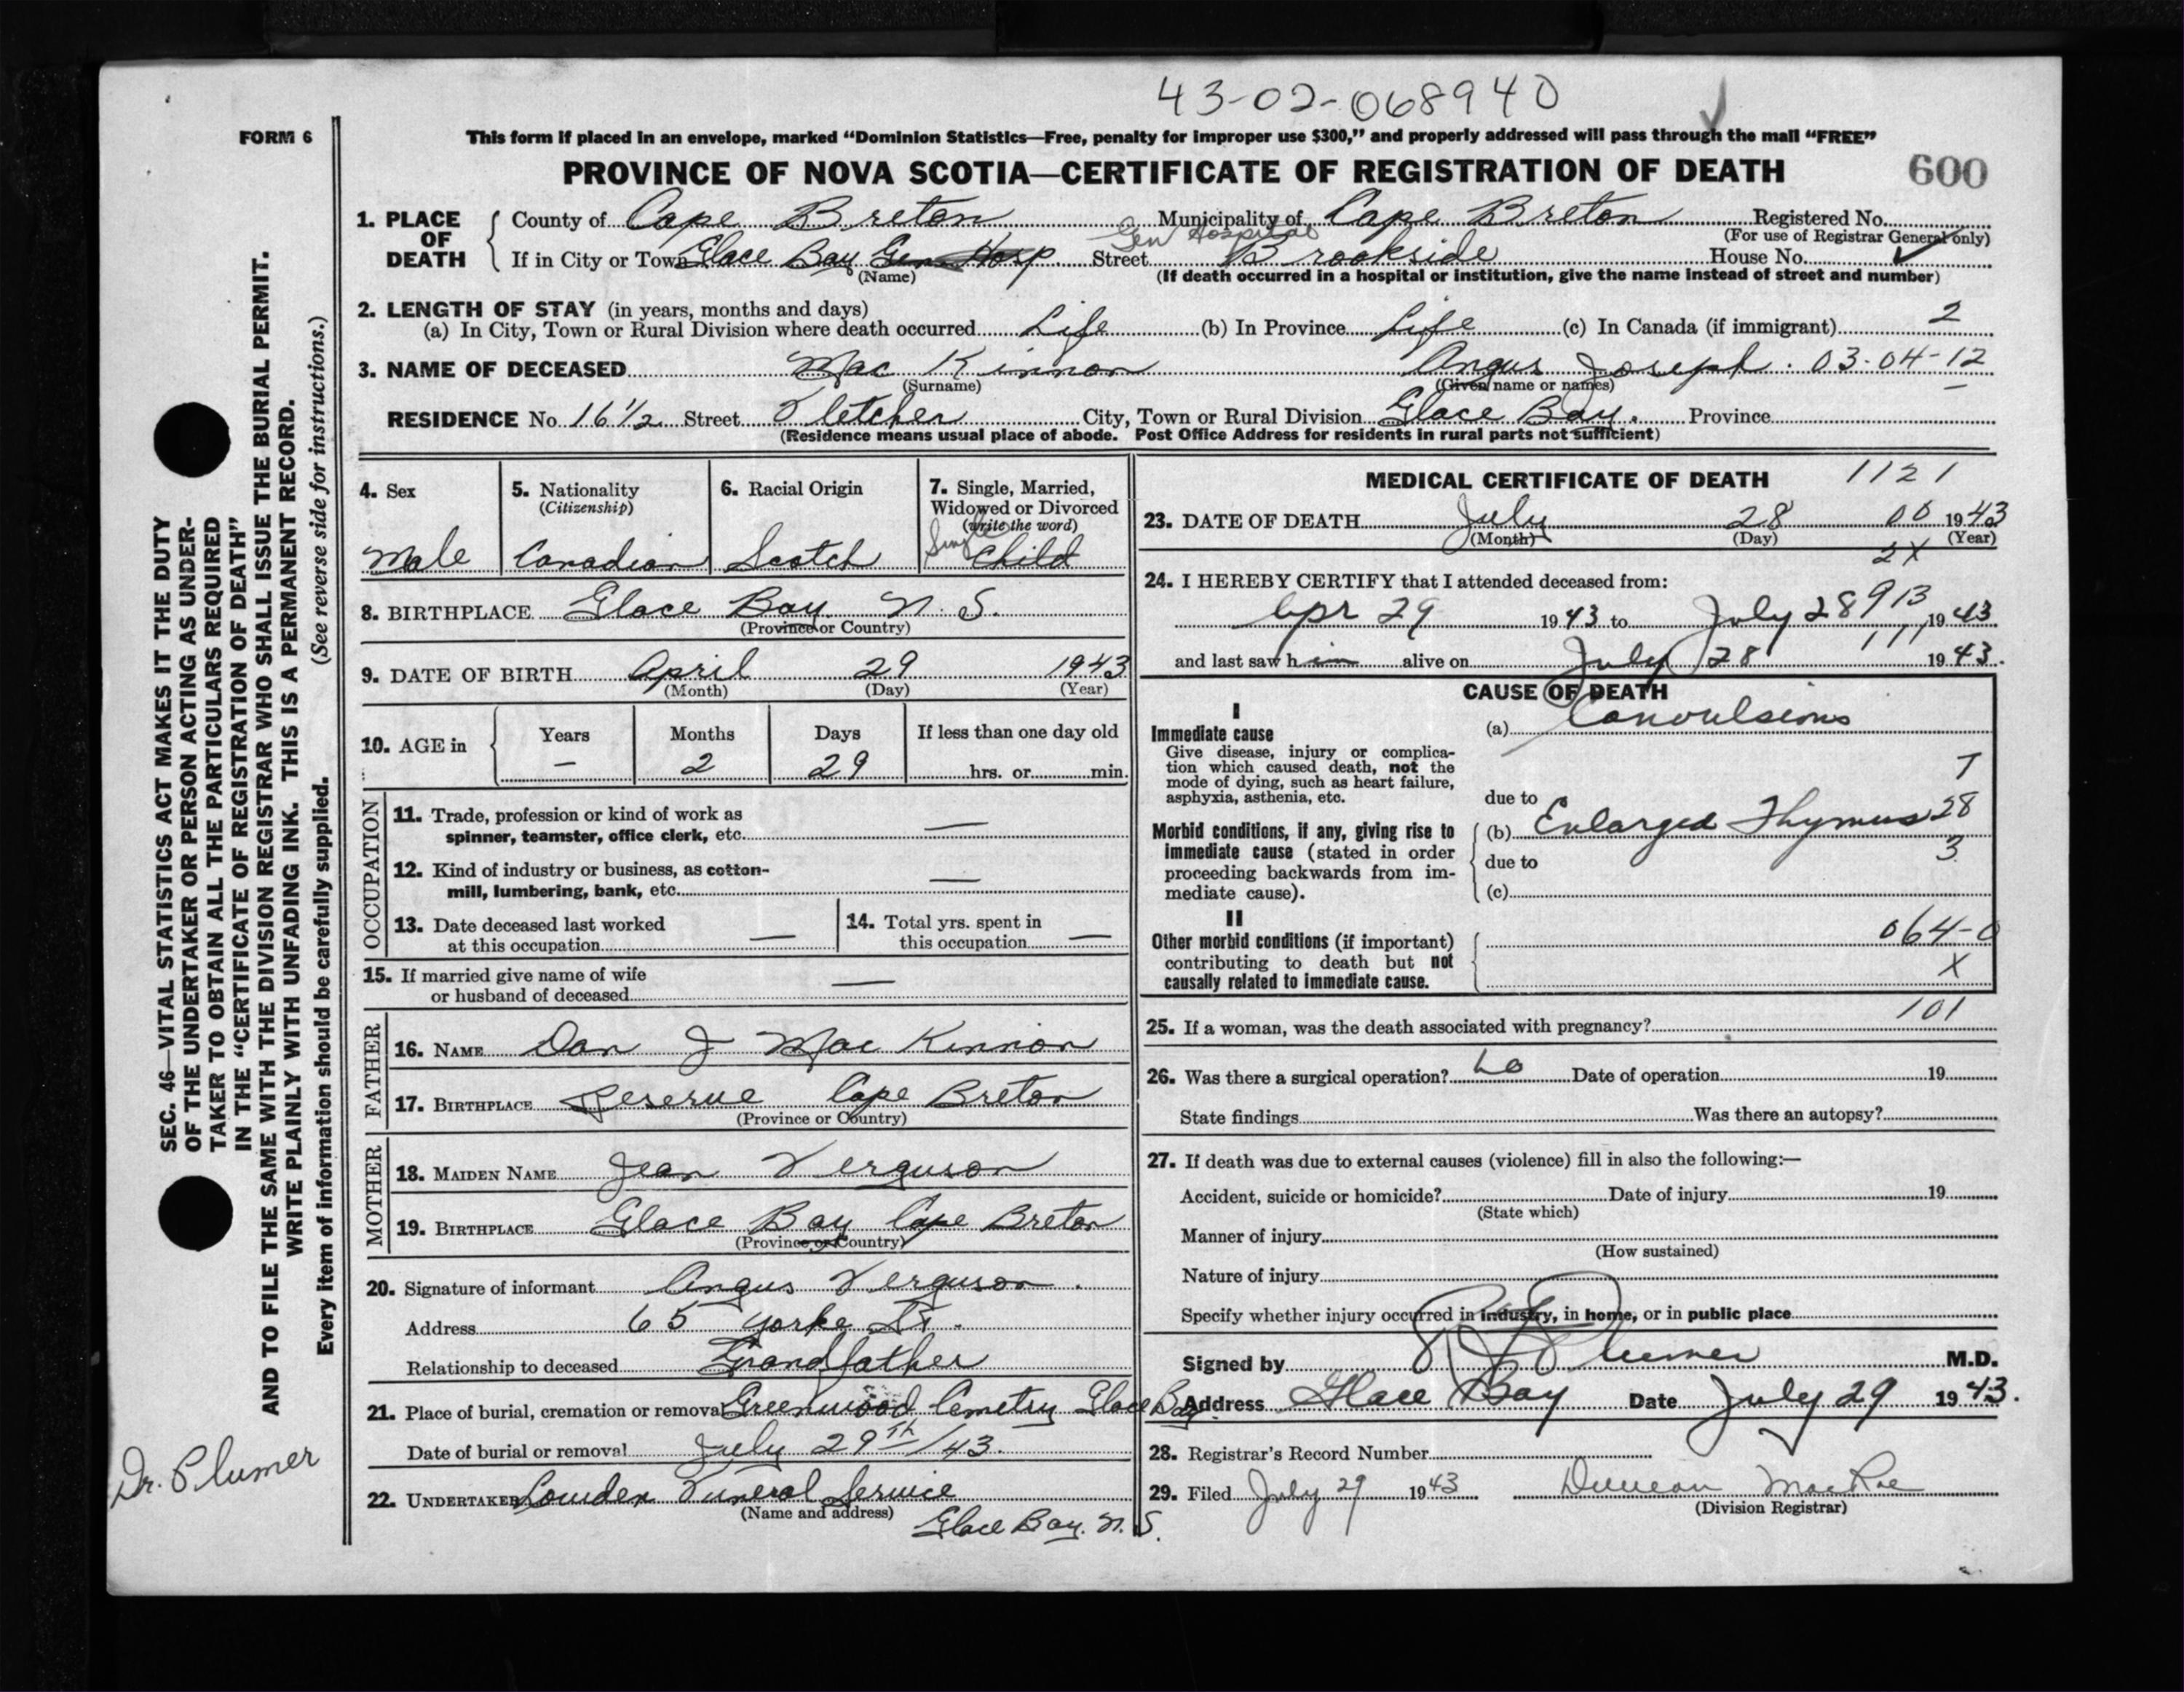 43-02-068940
FORM 6
This form if placed in an envelope, marked “Dominion Statistics—Free, penalty for improper use $300,” and properly addressed will pass through the mail “FREE”
PROVINCE OF NOVA SCOTIA—CERTIFICATE OF REGISTRATION OF DEATH
600
1. PLACE OF DEATH
County of Cape Breton Municipality of Cape Breton Registered No.
(For use of Registrar General only)
Gen Hospital
If in City or Town Glace Bay Gen Hosp Street Brookside House No.
(Name) (If death occurred in a hospital or institution, give the name instead of street and number)
2. LENGTH OF STAY (in years, months and days)
(a) In City, Town or Rural Division where death occurred Life (b) In Province Life (c) In Canada (if immigrant) 2
3. NAME OF DECEASED Mac Kinnon Angus Joseph. 03-04-12
(Surname) (Given name or names)
RESIDENCE No. 16 1/2 Street Fletcher City, Town or Rural Division Glace Bay. Province
(Residence means usual place of abode. Post Office Address for residents in rural parts not sufficient)
4. Sex
Male
5. Nationality
(Citizenship)
Canadian
6. Racial Origin
Scotch
7. Single, Married,
Widowed or Divorced
(write the word)
Single
Child
8. BIRTHPLACE Glace Bay N. S.
(Province or Country)
9. DATE OF BIRTH April 29 1943
(Month) (Day) (Year)
10. AGE in
Years Months Days If less than one day old
— 2 29 hrs. or min.
OCCUPATION
11. Trade, profession or kind of work as
spinner, teamster, office clerk, etc. —
12. Kind of industry or business, as cotton-
mill, lumbering, bank, etc. —
13. Date deceased last worked
at this occupation —
14. Total yrs. spent in
this occupation —
15. If married give name of wife
or husband of deceased —
FATHER
16. NAME Dan J Mac Kinnon
17. BIRTHPLACE Reserve Cape Breton
(Province or Country)
MOTHER
18. MAIDEN NAME Jean Ferguson
19. BIRTHPLACE Glace Bay Cape Breton
(Province or Country)
20. Signature of informant Angus Ferguson.
Address 65 Yorke St.
Relationship to deceased Grandfather
21. Place of burial, cremation or removal Greenwood Cemetry Glace Bay.
Date of burial or removal July 29th/43.
22. UNDERTAKER Lowden Funeral Service
(Name and address)
Glace Bay. N. S.
MEDICAL CERTIFICATE OF DEATH
1121
23. DATE OF DEATH July 28 00 1943
(Month) (Day) (Year)
2X
24. I HEREBY CERTIFY that I attended deceased from:
Apr 29 1943 to July 28 913 1943
and last saw him alive on July 28 111 1943.
CAUSE OF DEATH
I
Immediate cause
Give disease, injury or complica-
tion which caused death, not the
mode of dying, such as heart failure,
asphyxia, asthenia, etc.
(a) Convulsions
7
due to
Morbid conditions, if any, giving rise to
immediate cause (stated in order
proceeding backwards from im-
mediate cause).
(b) Enlarged Thymus 28
due to 3
(c)
II
Other morbid conditions (if important)
contributing to death but not
causally related to immediate cause.
064-0
X
101
25. If a woman, was the death associated with pregnancy?
26. Was there a surgical operation? no Date of operation 19
State findings Was there an autopsy?
27. If death was due to external causes (violence) fill in also the following:—
Accident, suicide or homicide? Date of injury 19
(State which)
Manner of injury
(How sustained)
Nature of injury
Specify whether injury occurred in industry, in home, or in public place
Signed by Plumer M.D.
Address Glace Bay Date July 29 1943.
28. Registrar's Record Number
29. Filed July 29 1943 Duncan MacRae
(Division Registrar)
SEC. 46—VITAL STATISTICS ACT MAKES IT THE DUTY
OF THE UNDERTAKER OR PERSON ACTING AS UNDER-
TAKER TO OBTAIN ALL THE PARTICULARS REQUIRED
IN THE “CERTIFICATE OF REGISTRATION OF DEATH”
AND TO FILE THE SAME WITH THE DIVISION REGISTRAR WHO SHALL ISSUE THE BURIAL PERMIT.
WRITE PLAINLY WITH UNFADING INK. THIS IS A PERMANENT RECORD.
Every item of information should be carefully supplied. (See reverse side for instructions.)
Dr. Plumer